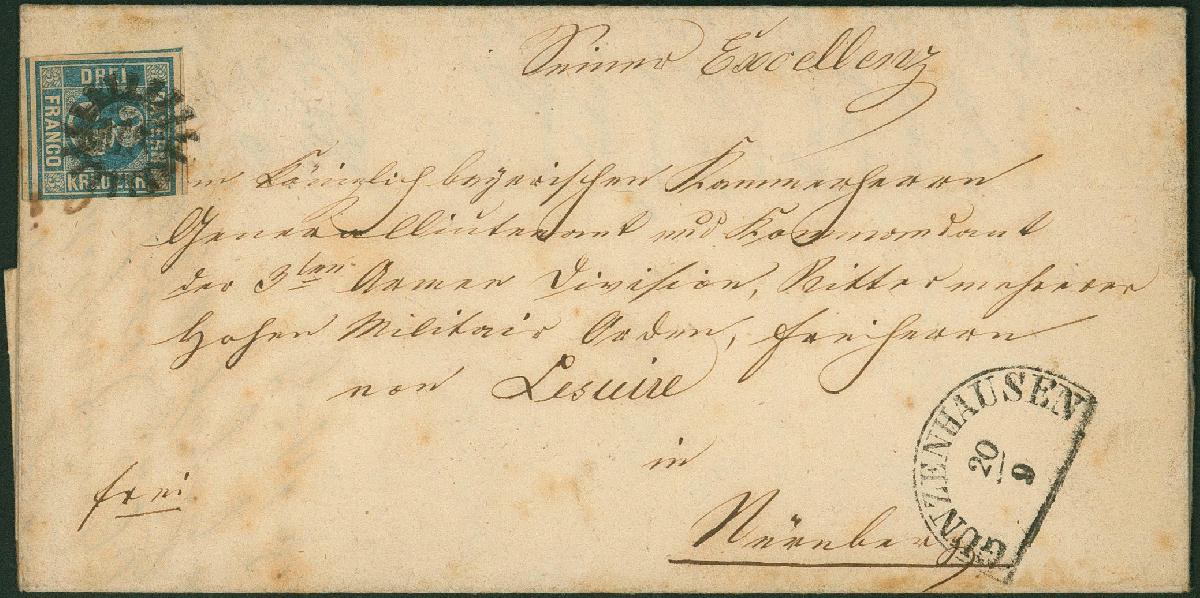 Seiner Excellenz
DREI
FRANCO
BAYERN
KREUZER
m Königlich bayerischen Kammerherrn
Generallieutenant und Kommandant
der 3ten Armee Division, Ritter mehrerer
Hohen Militair Orden, Freiherrn
von Lesuire
in
frei
Nürnberg
GUNZENHAUSEN
20
9